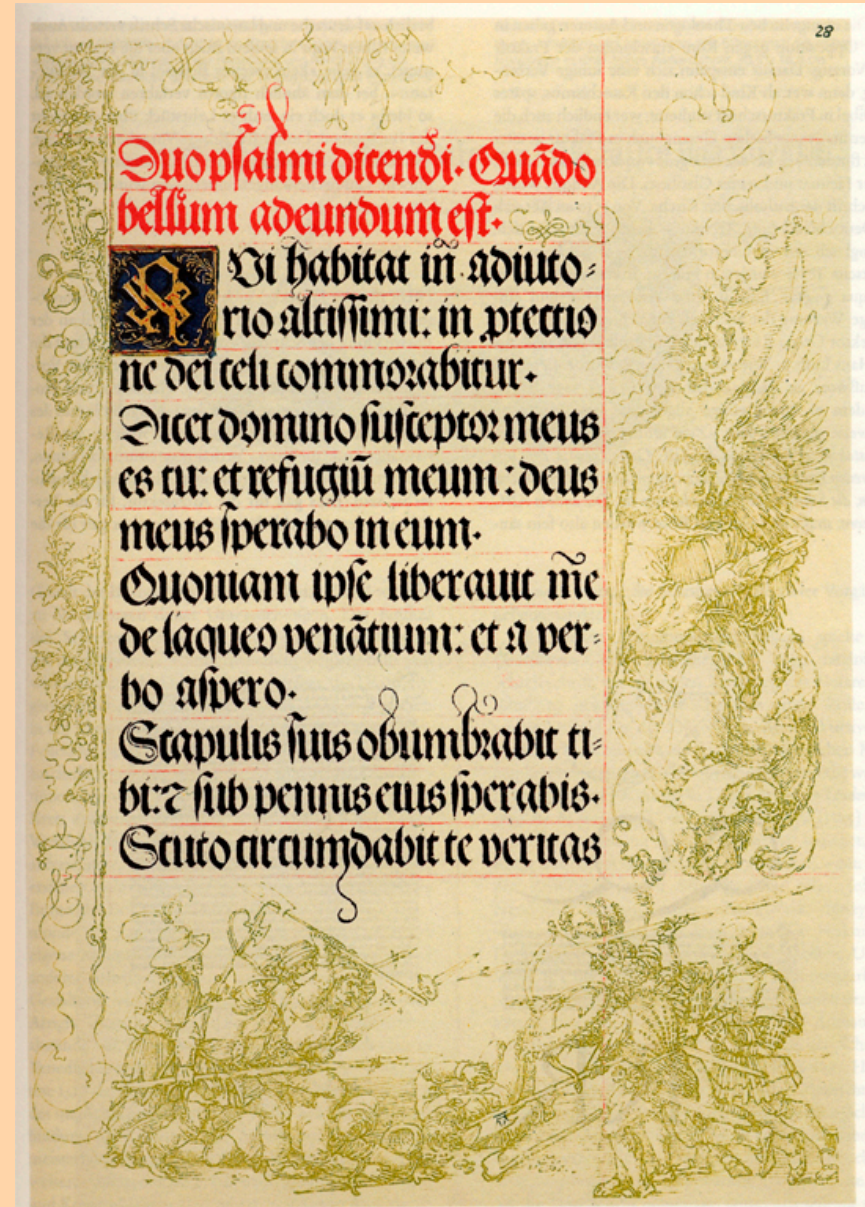 28
Duo psalmi dicendi. Quādo
bellum adeundum est.
QVi habitat in̄ adiuto⸗
rio altissimi: in ꝓtectio
ne dei celi commorabitur.
Dicet domino susceptor meus
es tu: et refugiū meum: deus
meus sperabo in eum.
Quoniam ipse liberauit me
de laqueo venātium: et a ver⸗
bo aspero.
Scapulis suis obumbrabit ti⸗
bi: ⁊ sub pennis eius sperabis.
Scuto circumdabit te veritas